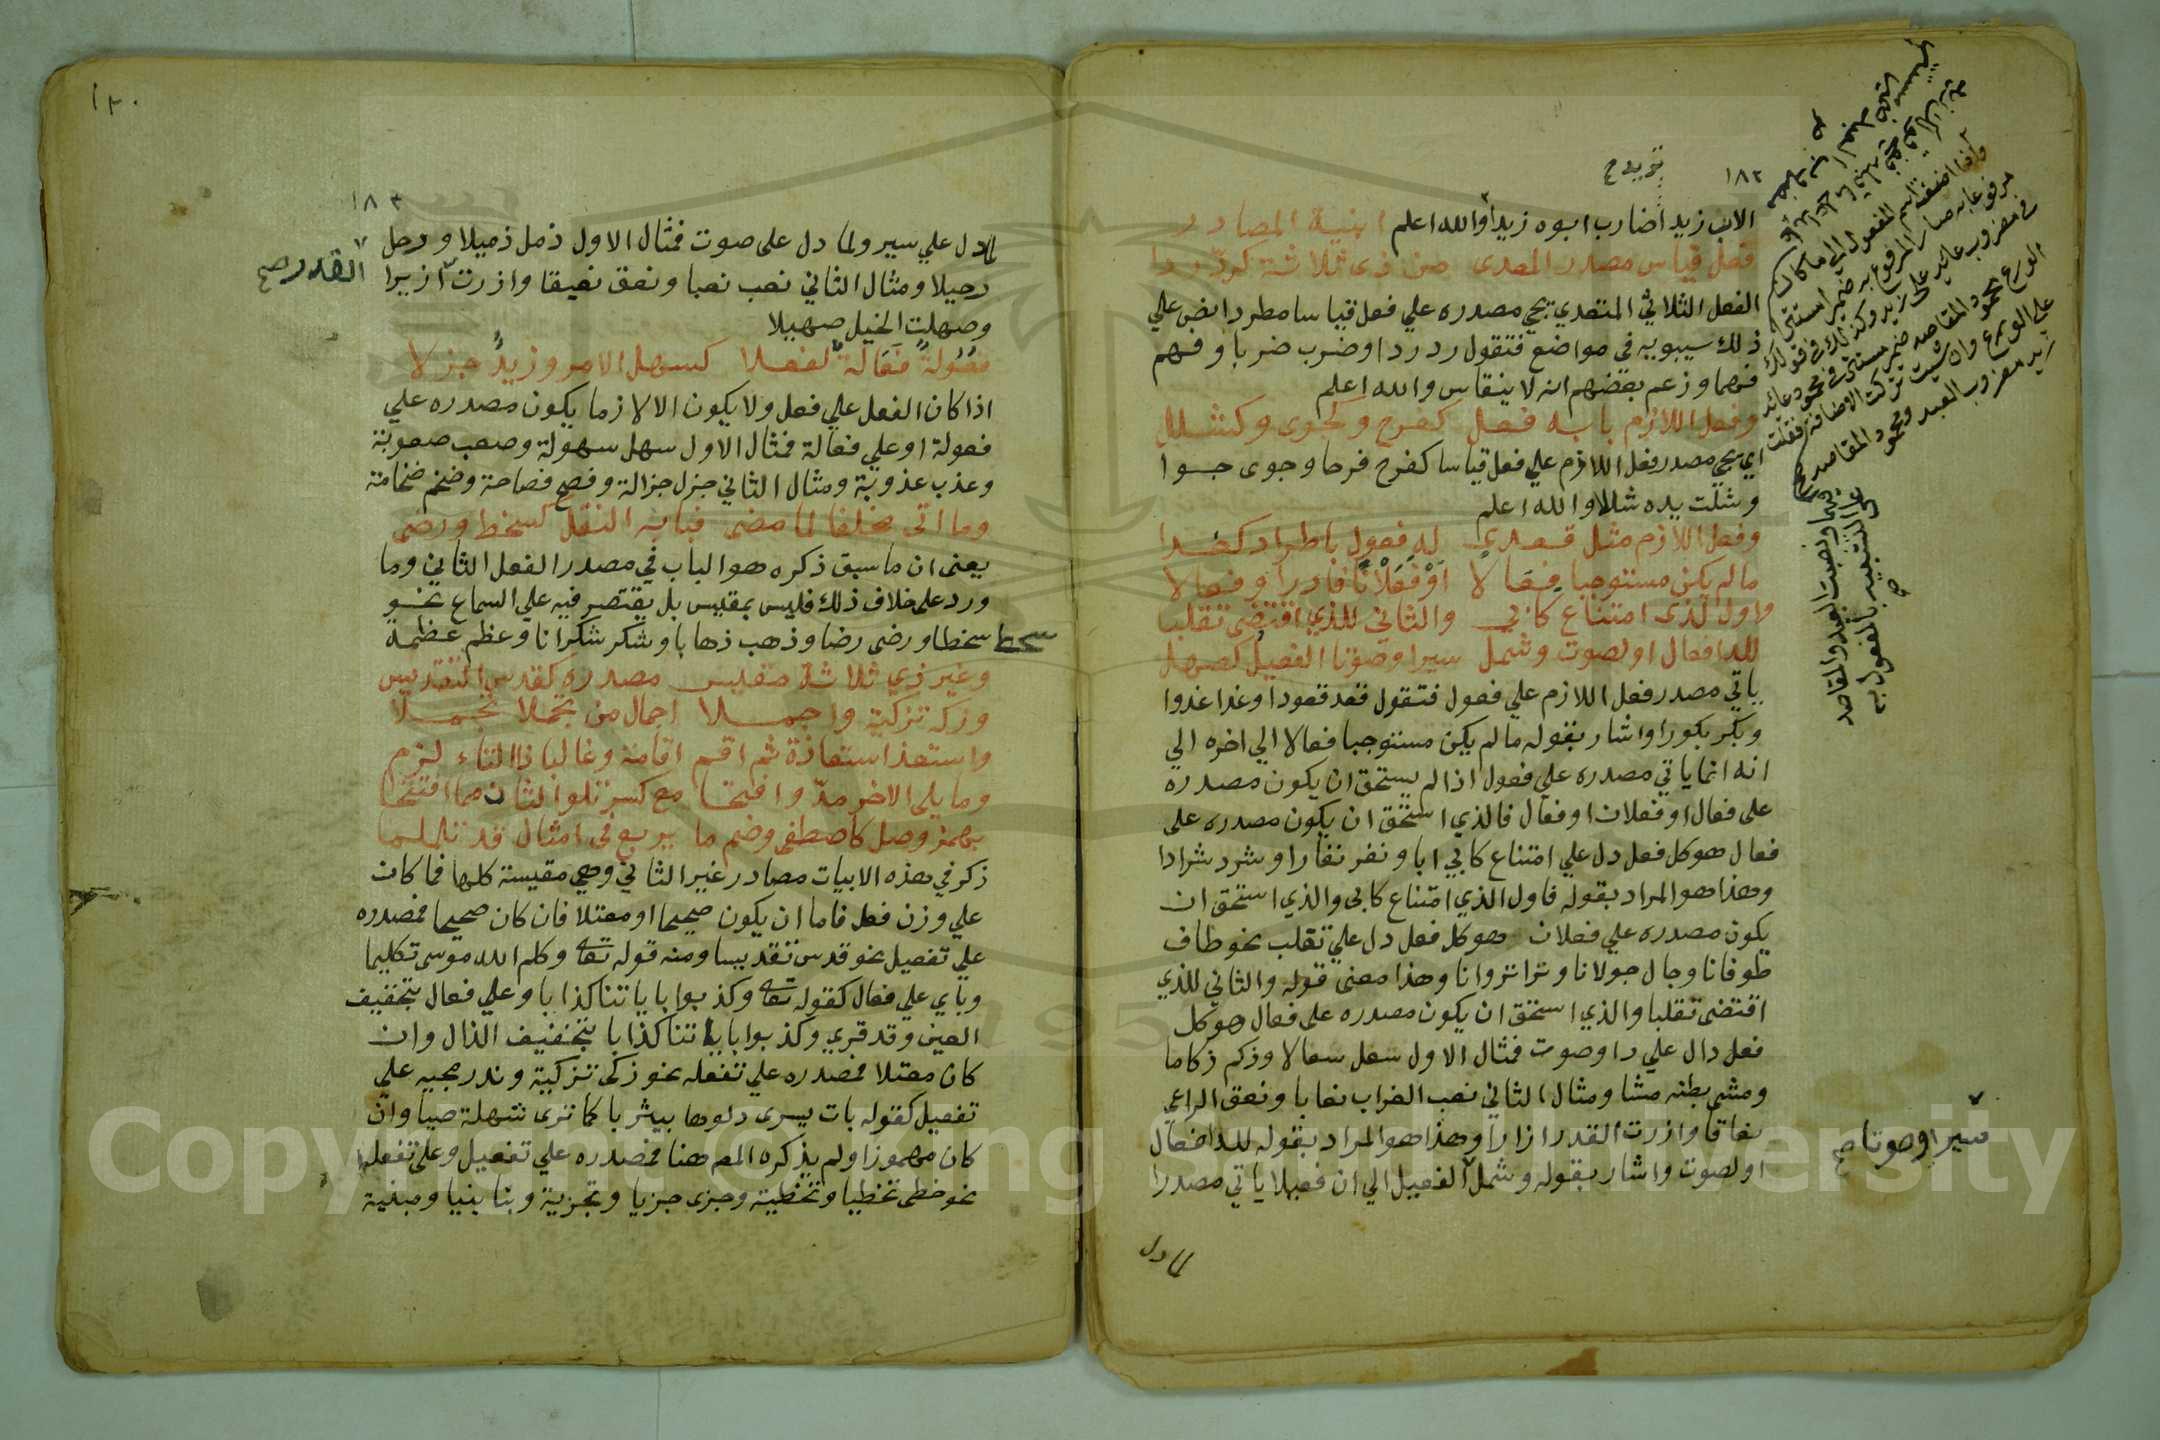 ١٨٢
الاب زيد اضارب ابوه زيدا والله اعلم ابنية المصادر
فعل قياس مصدر المعدى من ذى ثلاثة كرد ردا
الفعل الثلاثي المتعدي يجي مصدره علي فعل قياسا مطردا نص علي
ذلك سيبويه في مواضع فتقول رد ردا وضرب ضربا وفهم
فهما وزعم بعضهم انه لا ينقاس والله اعلم
وفعل اللازم بابه فعل كفرح وكجوى وكشلل
اي يجي مصدر فعل اللازم علي فعل قياسا كفرح فرحا وجوى جوا
وشلت يده شللا والله اعلم
وفعل اللازم مثل قعدى له فعول باطراد كغدا
مالم يكن مستوجبا فعالا اوفعلانا فادر او فعالا
واول لذى امتناع كابي والثاني للذي اقتضى تقلبا
للدا فعال او لصوت وشمل سيرا وصوتا الفعيل كصهل
ياتي مصدر فعل اللازم علي فعول فتقول قعد قعودا وغدا غدوا
وبكر بكورا واشار بقوله مالم يكن مستوجبا فعالا الي اخره الي
انه انما ياتي مصدره علي فعول اذا لم يستحق ان يكون مصدره
على فعال او فعلان او فعال فالذي استحق ان يكون مصدره على
فعال هو كل فعل دل علي امتناع كابي ابا ونفر نفارا وشرد شرادا
وهذا هو المراد بقوله فاول الذي امتناع كابى والذي استحق ان
يكون مصدره علي فعلان هو كل فعل دل علي تقلب نحو طاف
طوفانا وجال جولانا ونزا نزوانا وهذا معنى قوله والثاني للذي
اقتضى تقلبا والذي استحق ان يكون مصدره على فعال هو كل
فعل دال علي دا وصوت فمثال الاول سعل سعالا وزكم زكاما
ومشى بطنه مشا ومثال الثاني نعب الغراب نعابا ونعق الراعي
نعاقا وازرت القدر ازارا وهذا هو المراد بقوله للدا فعال
او لصوت واشار بقوله وشمل الفعيل الي ان فعيلا ياتي مصدرا
سيرا وصوتا صح
لما دل
١٨٣
لما دل علي سير ولما دل على صوت فمثال الاول ذمل ذميلا ورحل
رحيلا ومثال الثاني نعب نعبا ونعق نعيقا وازرت ازيرا
القدر صح
وصهلت الخيل صهيلا
فعولة فعالة لفعلا كسهل الامر وزيد جزلا
اذا كان الفعل علي فعل ولا يكون الا لازما يكون مصدره علي
فعولة او علي فعالة فمثال الاول سهل سهولة وصعب صعوبة
وعذب عذوبة ومثال الثاني جزل جزالة وفصح فصاحة وضخم ضخامة
وما اتى مخلفا لما مضى فبابه النقل كسخط ورضى
يعنى ان ما سبق ذكره هو الباب في مصدر الفعل الثاني وما
ورد على خلاف ذلك فليس بمقيس بل يقتصر فيه علي السماع نحو
سخط سخطا ورضى رضا وذهب ذهابا وشكر شكرانا وعظم عظمة
وغير ذي ثلاثة مقيس مصدره كقدس التقديس
وزكه تزكية واجملا اجمال من تجملا تجملا
واستعذ استعاذة ثم اقم اقامة وغالبا ذا التاء لزم
وما يلى الاخر مد وافتحا مع كسر تلو الثان مما افتتحا
بهمز وصل كاصطفى وضم ما يربع في امثال قد تلملما
ذكر في هذه الابيات مصادر غير الثاني وهي مقيسة كلها فما كان
علي وزن فعل فاما ان يكون صحيحا او معتلا فان كان صحيحا فمصدره
علي تفعيل نحو قدس تقديسا ومنه قوله تعالى وكلم الله موسى تكليما
وياي علي فعال كقوله تعالى وكذبوا باياتنا كذابا وعلي فعال بتخفيف
العين وقد قري وكذبوا باياتنا كذابا بتخفيف الذال وان
كان معتلا فمصدره علي تفعله نحو زكى تزكية وندر مجيه علي
تفعيل كقوله بات يسرى دلوها بيشربا كما ترى شهلة صبيا وان
كان مهموزا ولم يذكره المص هنا فمصدره علي تفعيل وعلى تفعله
نحو خطى تخطيا وتخطية وجزى جزيا وتجزية وبنا بنيا ومبنية